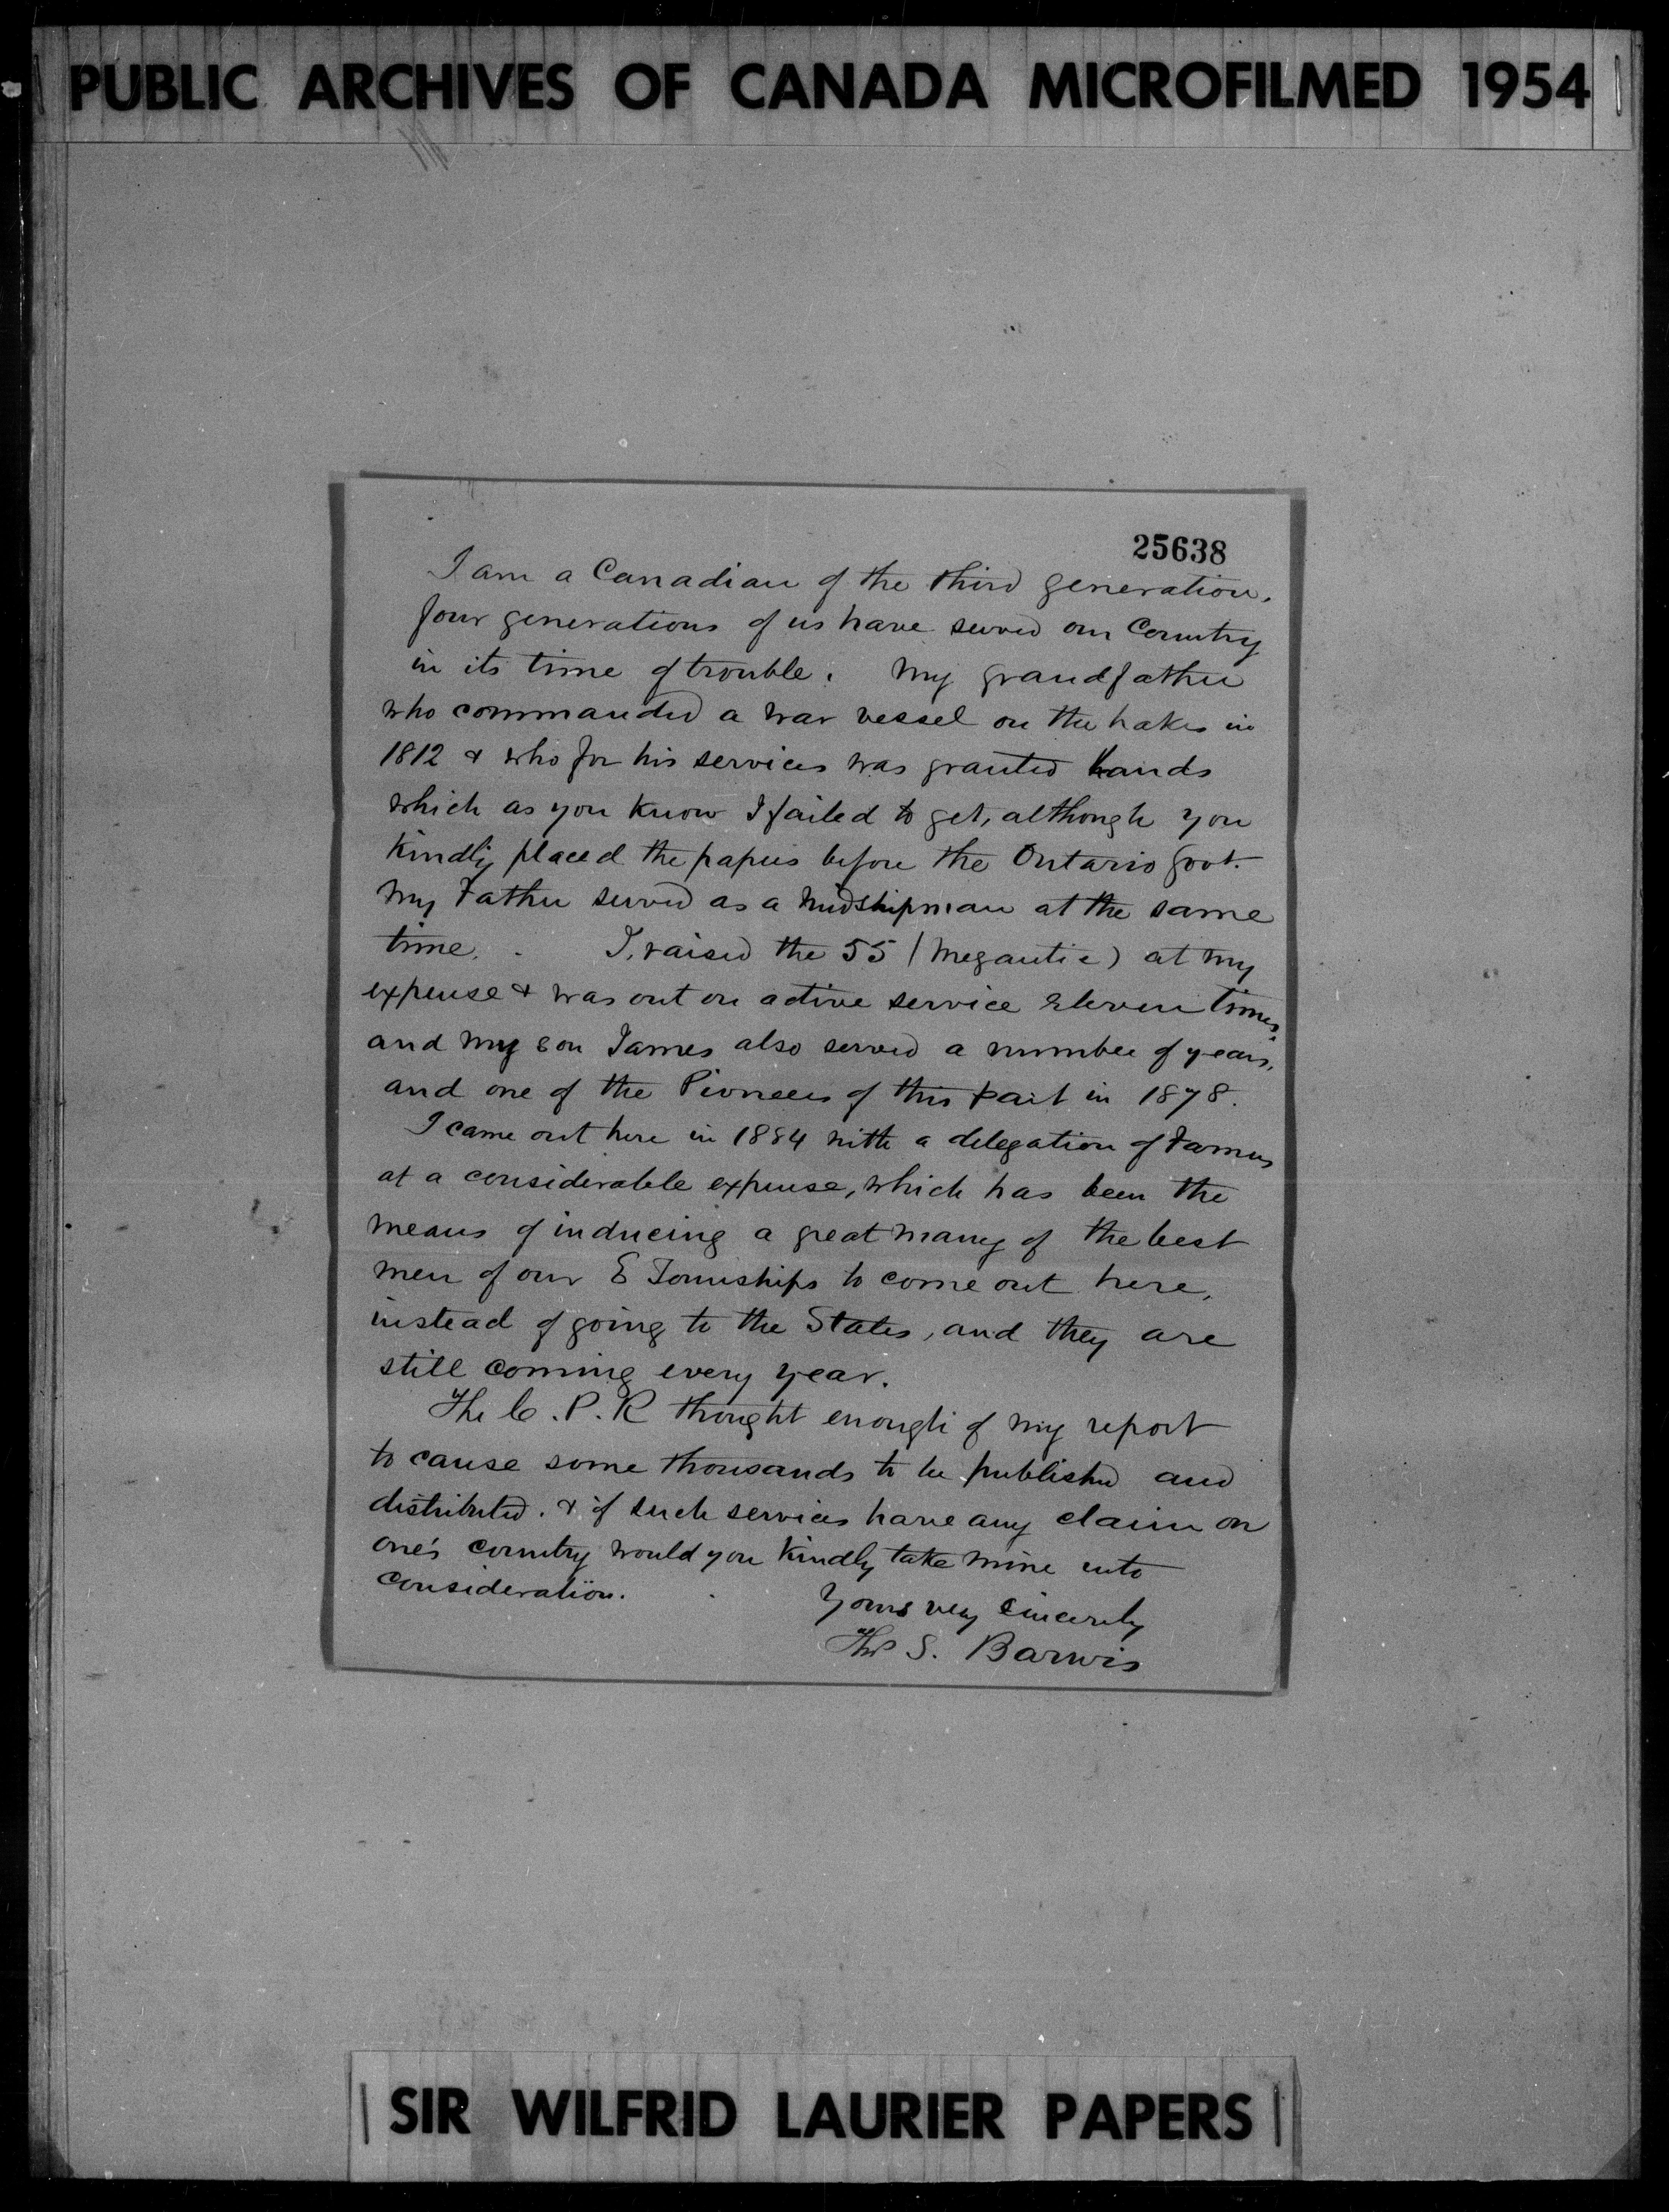 PUBLIC ARCHIVES OF CANADA MICROFILMED 1954
25638
I am a Canadian of the third generation.
four generations of us have served our Country
in its time of trouble. My grandfather
who commanded a war vessel on the Lakes in
1812 & who for his services was granted Lands
which as you know I failed to get, although you
kindly placed the papers before the Ontario Govt.
My Father served as a Midshipman at the same
time. I, raised the 55 (Megantic) at my
expense & was out on active service Eleven times,
and my son James also served a number of years,
and one of the Pioneers of this part in 1878.
I came out here in 1884 with a delegation of Farmers
at a considerable expense, which has been the
means of inducing a great many of the best
men of our E Townships to come out here,
instead of going to the States, and they are
still coming every year.
The C. P. R thought enough of my report
to cause some thousands to be published and
distributed. & if such services have any claim on
one's country would you kindly take mine into
consideration.
Yours very sincerely
Thos S. Barwis
SIR WILFRID LAURIER PAPERS